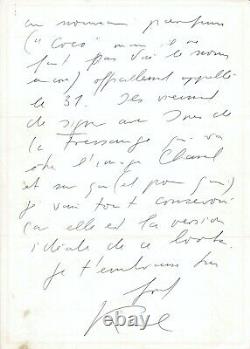 un nouveau parfum
("Coco" mais il ne
faut pas dire le nom
) officiellement appellé
le 31. Ils viennent
de signer avec Ines de
la Fressange qui va
être l'image Chanel
et sur qui (et pour qui)
je vais tout concevoir
car elle est la version
idéale de ce look.
Je t'embrasse très
fort
Karl